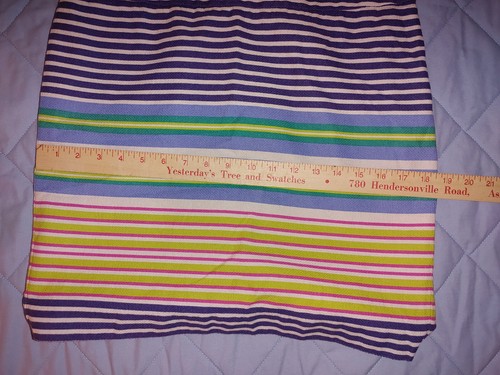 1 2 3 4 5 6 7 8 9 10 11 12 13 14 15 16 17 18 19 20 21
Yesterday's Tree and Swatches • 780 Hendersonville Road, As